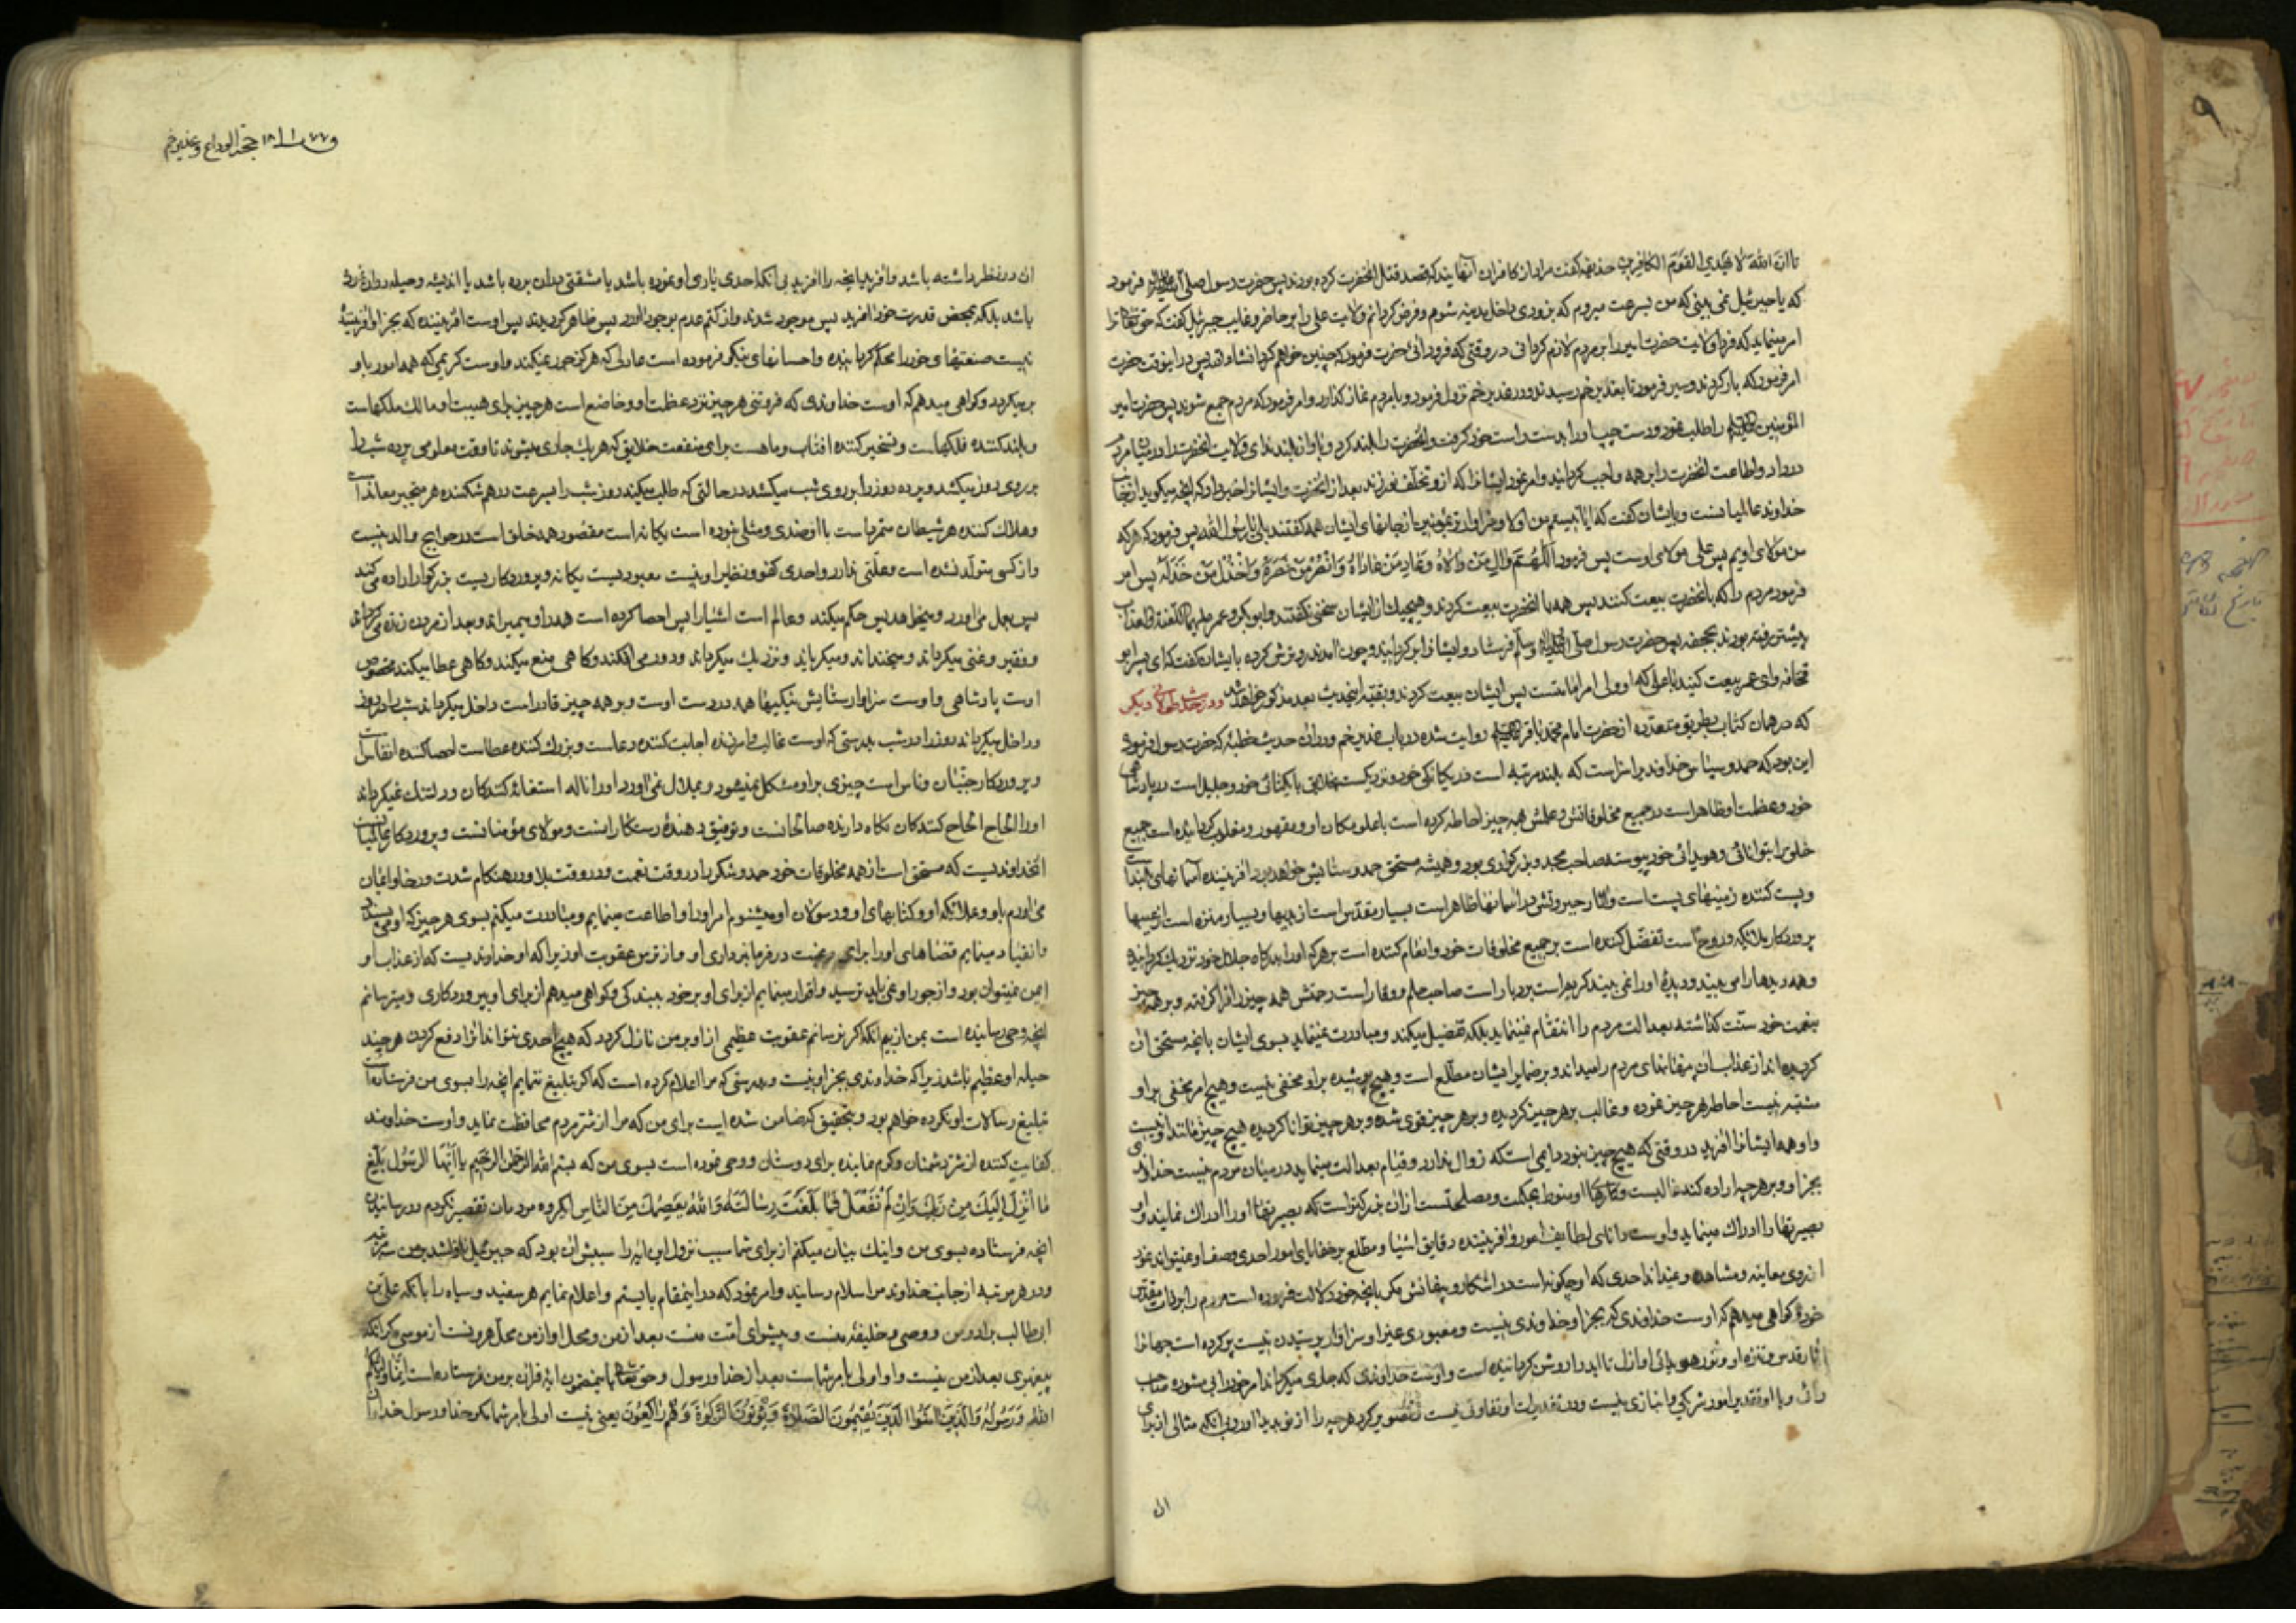 تا ان الله لا یهدی القوم الکافرین حذیفه گفت مراد از کافران آنهایند که قصد قتل آنحضرت کرده بودند پس حضرت رسول صلی الله علیه و آله فرمود
که یا جبرئیل نمی بینی که من بسرعت میروم که بزودی داخل مدینه شوم و فرض گردانم ولایت علی را بر حاضر و غایب جبرئیل گفت که حق تعالی ترا
امر مینماید که فردا ولایت حضرت امیر را بر مردم لازم گردانی در وقتی که فرود آئی حضرت فرمود که چنین خواهم کرد انشاء الله پس در اینوقت حضرت
امر فرمود که بار کردند و سیر فرمود تا بغدیر خم رسیدند و در غدیر خم نزول فرمود و با مردم نماز گذارد و امر فرمود که مردم جمیع شوند پس حضرت امیر
المؤمنین علیه السلام را طلب نمود و دست چپ او را بدست راست خود گرفت و آنحضرت را بلند کرد و باواز بلند ندای ولایت آنحضرت را در میان مردم
در داد و اطاعت آنحضرت را بر همه واجب گردانید و امر نمود ایشانرا که از او تخلف نورزند بعد از آنحضرت و ایشانرا خبر داد که آنچه میگوید از جانب
خداوند عالمیانست و بایشان گفت که ایا نیستم من اولا و سزاوارتر بمؤمنین از جانهای ایشان همه گفتند بلی یا رسول الله پس فرمود که هر که
من مولای اویم پس علی مولای اوست پس فرمود اللهم وال من والاه و عاد من عاداه و انصر من نصره و اخذل من خذله پس امر
فرمود مردم را که با آنحضرت بیعت کنند پس همه با آنحضرت بیعت کردند و هیچیک از ایشان سخنی نگفتند و ابوبکر و عمر علیهما اللعنة و العذاب
پیشتر رفته بودند بجحفه پس حضرت رسول صلی الله علیه و آله و سلم فرستاد و ایشانرا برگردانید و چون آمدند رو ترش کرده بایشان گفت که ای پسر ابو
قحافه و ای عمر بیعت کنید با علی که او ولی امر امامتست پس ایشان بیعت کردند و بقیه اینحدیث بعد مذکور خواهد شد و در حدیث دیگر
که در همان کتاب بطریق متعدده از حضرت امام محمد باقر علیه السلام روایت شده در باب غدیر خم و در آن حدیث خطبه که حضرت رسول فرمود
این بود که حمد و سپاس خداوندیرا سزاست که بلند مرتبه است در یگانگی خود و نزدیکست بخلایق با یکتائی خود و جلیل است در پادشاهی
خود و عظمت او ظاهر است در جمیع مخلوقاتش و علمش همه چیز احاطه کرده است با علو مکان او و مقهور و مغلوب گردانیده است جمیع
خلق را بتوانائی و هویدائی خود پیوسته صاحب مجد و بزرگواری بود و همیشه مستحق حمد و ستایش خواهد بود آفریننده آسمانهای بلند است
و پست کننده زمینهای پست است و آثار جبروتش در آسمانها ظاهر است بسیار مقدس است از بدیها و بسیار منزه است از عیبها
پروردگار ملائکه و روح است تفضل کننده است بر جمیع مخلوقات خود و انعام کننده است بر هر که او را بدرگاه جلال خود نزدیک گردانیده
و همه دیدها را می بیند و دیدۀ او را نمی بیند کریم است بردبار است صاحب حلم و وقار است رحمتش همه چیز را فرا گرفته و بر همه چیز
بنعمت خود منت گذاشته بعدالت مردم را انتقام نمینماید بلکه تفضیل میکند و مبادرت نمینماید بسوی ایشان بآنچه مستحق آن
گردیده اند از عذاب آن پنهانهای مردم را میداند و بر ضمایر ایشان مطلع است و هیچ پوشیده بر او مخفی نیست و هیچ امر مخفی بر او
مشتبه نیست احاطه هر چیز نموده و غالب بر هر چیز گردیده و بر هر چیز قوی شده و بر هر چیز توانا گردیده هیچ چیز مانند او نیست
و او همه ایشانرا آفرید در وقتی که هیچ چیز نبود دایمی است که زوال ندارد و قیام بعدالت مینماید در میان مردم نیست خداوندی
بجز او و بر هر چه اراده کند غالبست و کارهای او منوط بحکمت و مصلحتست از آن بزرگتر است که بصیرتها او را ادراک نمایند و او
بصیرتها را ادراک مینماید و اوست دانای لطایف امور و آفریننده دقایق اشیا و مطلع بر خفایای امور احدی وصف او نمیتواند نمود
از روی معاینه و مشاهده و نمیداند احدی که او چگونه است در آشکار و پنهانش مگر بآنچه خود دلالت فرموده است مردم را بر ذات مقدس
خود و گواهی میدهم که اوست خداوندی که بجز او خداوندی نیست و معبودی غیر او سزاوار پرستیدن نیست پر کرده است جهانرا
آثار قدس و تنزه او و نور هویدائی او از ازل تا ابد را روشن گردانیده است و اوست خداوندی که جاری میگرداند امر خود را بی مشوره صاحب
رائی و با او در تقدیر امور شریکی و انبازی نیست و در تقدیرات او تفاوتی نیست تصویر کرد هر چه را از نو پدید آورد بی آنکه مثالی از برای
ان
ورق ۷۷ ۱۸ حجة الوداع و غدیر خم
آن در نظر داشته باشد و آفرید آنچه را آفرید بی آنکه احدی یاری او نموده باشد یا مشقتی بدان برده باشد یا اندیشه و حیله در آن کرده
باشد بلکه بمحض قدرت خود آفرید پس موجود شدند و از کتم عدم بوجود آورد پس ظاهر گردیدند پس اوست آفریننده که بجز او آفریننده
نیست صنعتهای خود را محکم گردانیده و احسانهای نیکو فرموده است عادلی که هرگز جور نمیکند و اوست کریمی که همه امور باو
بر میگردد و گواهی میدهم که اوست خداوندی که فروتنی هر چیز نزد عظمت او و خاضع است هر چیز برای هیبت او مالک ملکهاست
و بلند کننده فلکهاست و تسخیر کننده آفتاب و ماهست برای منفعت خلایق که هر یک جاری میشوند تا وقت معلومی پرده شب را
بر روی روز میکشد و پرده روز را بر روی شب میکشد در حالتی که طلب میکند روز شب را بسرعت در هم شکننده هر متجبر معاند است
و هلاک کننده هر شیطان متمرد است با او ضدی و مثلی نبوده است یگانه است مقصود همه خلق است در حوایج والد نیست
و از کسی متولد نشده است و علتی ندارد و احدی کفو و نظیر او نیست معبودیست یگانه و پروردگاریست بزرگوار اراده می کند
پس بعمل می آورد و میخواهد پس حکم میکند و عالم است اشیا را پس احصا کرده است همه را و میمیراند و بعد از مردن زنده می گرداند
و فقیر و غنی میگرداند و میخنداند و میگریاند و نزدیک میگرداند و دور می افکند و گاهی منع میکند و گاهی عطا میکند مخصوص
اوست پادشاهی و اوست سزاوار ستایش نیکیها همه در دست اوست و بر همه چیز قادر است داخل میگرداند شب را در روز
و داخل میگرداند روز را در شب بدرستی که اوست غالب و آمرزنده اجابت کننده دعاست و بزرگ کننده عطاست احصا کننده انفاس است
و پروردگار جنیان و ناس است چیزی بر او مشکل نمیشود و بملال نمی آورد او را ناله استغاثه کنندگان و دلتنگ نمیگرداند
او را الحاح الحاح کنندگان نگاه دارنده صالحانست و توفیق دهندۀ رستگارانست و مولای مؤمنانست و پروردگار عالمیانست
آنخداوندیست که مستحق است از همه مخلوقات خود حمد و شکر را در وقت نعمت و در وقت بلا و در هنگام شدت و رخا و ایمان
می آورم باو و بملائکه او و کتابهای او و رسولان او میشنوم امر او را و اطاعت مینمایم و مبادرت میکنم بسوی هر چیز که او می پسندد
و انقیاد مینمایم قضاهای او را برای رغبت در فرمانبرداری او و از ترس عقوبت او زیرا که او خداوندیست که از عذاب او
ایمن نمیتوان بود و از جور او نمی باید ترسید و اقرار مینمایم از برای او بر خود ببندگی و گواهی میدهم از برای او بپروردگاری و میرسانم
آنچه وحی رسانیده است بمن از بیم آنکه اگر نرسانم عقوبت عظیمی از او بر من نازل گردد که هیچ احدی نتواند آنرا دفع کردن هر چند
حیله او عظیم باشد زیرا که خداوندی بجز او نیست و بدرستی که مرا اعلام کرده است که اگر تبلیغ ننمایم آنچه را بسوی من فرستاده است
تبلیغ رسالات او نکرده خواهم بود و بتحقیق که ضامن شده است برای من که مرا از شر مردم محافظت نماید و اوست خداوند
کفایت کننده از شر دشمنان و کرم نماینده برای دوستان و وحی نموده است بسوی من که بسم الله الرحمن الرحیم یا ایها الرسول بلغ
ما انزل الیک من ربک و ان لم تفعل فما بلغت رسالته و الله یعصمک من الناس ای گروه مردمان تقصیر نکردم در رسانیدن
آنچه فرستاده بسوی من و اینک بیان میکنم از برای شما سبب نزول این آیه را سببش آن بود که جبرئیل نازل شد بر من سه مرتبه
و در هر مرتبه از جانب خداوند مرا سلام رسانید و امر نمود که در اینمقام بایستم و اعلام نمایم هر سفید و سیاه را بآنکه علی بن
ابیطالب برادر من و وصی و خلیفه منست و پیشوای امت منست بعد از من و محل او از من محل هرونست از موسی مگر آنکه
پیغمبری بعد از من نیست و او اولی بامر شماست بعد از خدا و رسول و حق تعالی باینمضمون آیه قرآن بر من فرستاده است انما ولیکم
الله و رسوله و الذین امنوا الذین یقیمون الصلوة و یؤتون الزکوة و هم راکعون یعنی نیست اولی بامر شما مگر خدا و رسول خدا و آنان
۹